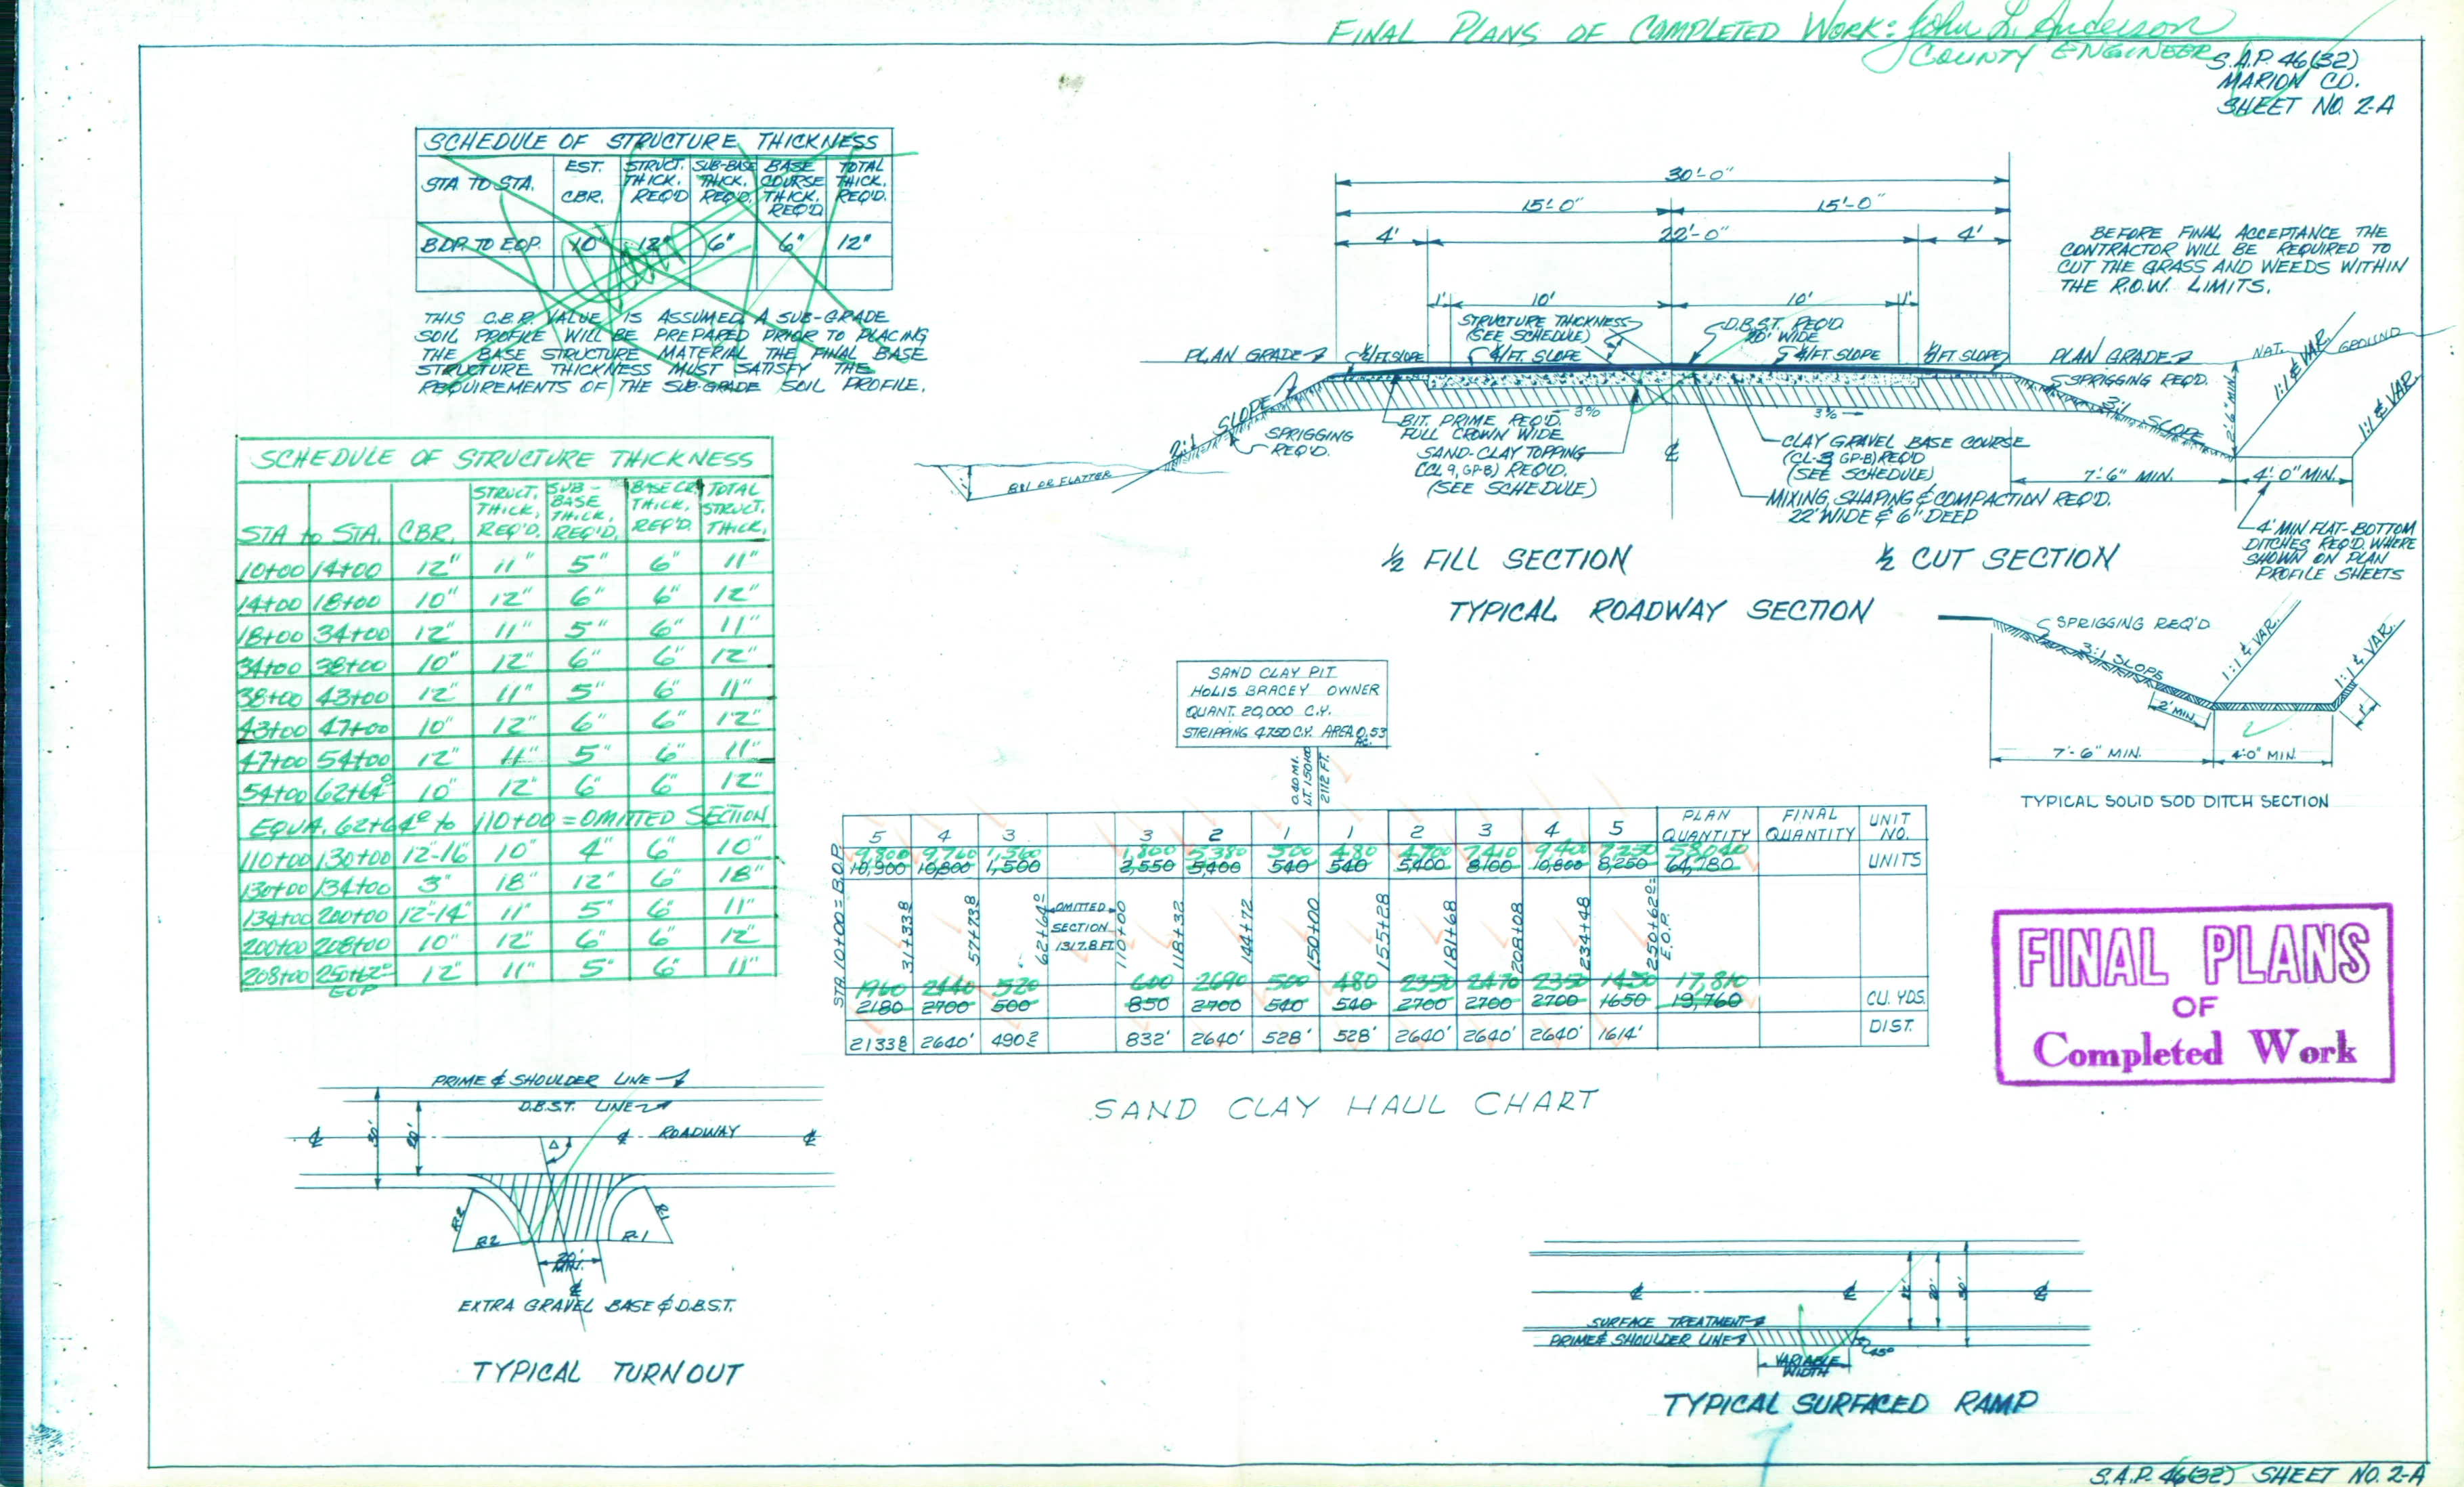 FINAL PLANS OF COMPLETED WORK: John L. Anderson
COUNTY ENGINEER
S.A.P. 46(32)
MARION CO.
SHEET NO. 2-A
SCHEDULE OF STRUCTURE THICKNESS
STA. TO STA. EST. CBR. STRUCT. THICK. REQ'D SUB-BASE THICK. REQ'D. BASE COURSE THICK. REQ'D TOTAL THICK. REQ'D.
B.O.P. TO E.O.P. 10" 12" 6" 6" 12"
THIS C.B.R. VALUE IS ASSUMED. A SUB-GRADE
SOIL PROFILE WILL BE PREPARED PRIOR TO PLACING
THE BASE STRUCTURE MATERIAL THE FINAL BASE
STRUCTURE THICKNESS MUST SATISFY THE
REQUIREMENTS OF THE SUB-GRADE SOIL PROFILE.
30'-0"
15'-0" 15'-0"
4' 22'-0" 4'
1' 10' 10' 1'
STRUCTURE THICKNESS
(SEE SCHEDULE)
D.B.S.T. REQ'D
20' WIDE
PLAN GRADE ½"/FT SLOPE ¼"/FT. SLOPE ¼"/FT SLOPE ½"/FT SLOPE PLAN GRADE
BEFORE FINAL ACCEPTANCE THE
CONTRACTOR WILL BE REQUIRED TO
CUT THE GRASS AND WEEDS WITHIN
THE R.O.W. LIMITS.
NAT. GROUND
1:1 & VAR.
1:1 & VAR.
SPRIGGING REQ'D.
3:1 SLOPE
2'-6" MIN.
2:1 SLOPE
SPRIGGING
REQ'D.
8:1 OR FLATTER
BIT. PRIME REQ'D.
FULL CROWN WIDE
3% 3%
SAND-CLAY TOPPING
(CL 9, GP-B) REQ'D.
(SEE SCHEDULE)
℄
CLAY GRAVEL BASE COURSE
(CL-3 GP-B) REQ'D
(SEE SCHEDULE)
MIXING, SHAPING & COMPACTION REQ'D.
22' WIDE & 6" DEEP
7'-6" MIN. 4'-0" MIN.
4' MIN FLAT-BOTTOM
DITCHES REQ'D. WHERE
SHOWN ON PLAN
PROFILE SHEETS
½ FILL SECTION ½ CUT SECTION
TYPICAL ROADWAY SECTION
SCHEDULE OF STRUCTURE THICKNESS
STA to STA. CBR. STRUCT. THICK. REQ'D. SUB-BASE THICK. REQ'D. BASE CR. THICK. REQ'D. TOTAL STRUCT. THICK.
10+00 14+00 12" 11" 5" 6" 11"
14+00 18+00 10" 12" 6" 6" 12"
18+00 34+00 12" 11" 5" 6" 11"
34+00 38+00 10" 12" 6" 6" 12"
38+00 43+00 12" 11" 5" 6" 11"
43+00 47+00 10" 12" 6" 6" 12"
47+00 54+00 12" 11" 5" 6" 11"
54+00 62+64⁰ 10" 12" 6" 6" 12"
EQUA. 62+64⁰ to 110+00 = OMITTED SECTION
110+00 130+00 12"-16" 10" 4" 6" 10"
130+00 134+00 3" 18" 12" 6" 18"
134+00 200+00 12"-14" 11" 5" 6" 11"
200+00 208+00 10" 12" 6" 6" 12"
208+00 250+62⁰ 12" 11" 5" 6" 11"
EOP
SPRIGGING REQ'D
3:1 SLOPE
1:1 & VAR.
1:1 & VAR.
2' MIN.
1'
7'-6" MIN. 4'-0" MIN.
TYPICAL SOLID SOD DITCH SECTION
SAND CLAY PIT
HOLIS BRACEY OWNER
QUANT. 20,000 C.Y.
STRIPPING 4750 C.Y. AREA 0.53
AC.
0.40 MI.
LT. 150+00
2112 FT.
5 4 3 3 2 1 1 2 3 4 5 PLAN QUANTITY FINAL QUANTITY UNIT NO.
9,800 9,760 1,560 1,800 5,380 500 480 4,700 7,410 9,400 7,250 58,040
10,900 10,800 1,500 2,550 5,400 540 540 5,400 8,100 10,800 8,250 64,780 UNITS
STA. 10+00 = B.O.P. 31+33⁸ 57+73⁸ 62+64⁰ OMITTED SECTION 1317.8 FT. 110+00 118+32 144+72 150+00 155+28 181+68 208+08 234+48 250+62⁰ = E.O.P.
1960 2440 520 600 2690 500 480 2350 2470 2350 1450 17,810
2180 2700 500 850 2700 540 540 2700 2700 2700 1650 19,760 CU. YDS.
2133⁸ 2640' 490² 832' 2640' 528' 528' 2640' 2640' 2640' 1614' DIST.
SAND CLAY HAUL CHART
FINAL PLANS
OF
Completed Work
PRIME & SHOULDER LINE
D.B.S.T. LINE
℄ 30' 20' Δ ℄ ROADWAY ℄
R-2 R-2 R-1 R-1
20'
MIN.
℄
EXTRA GRAVEL BASE & D.B.S.T.
TYPICAL TURNOUT
℄ ℄ 22' 20' 30' ℄
SURFACE TREATMENT
PRIME & SHOULDER LINE
45°
VARIABLE
WIDTH
TYPICAL SURFACED RAMP
S.A.P. 46(32) SHEET NO. 2-A